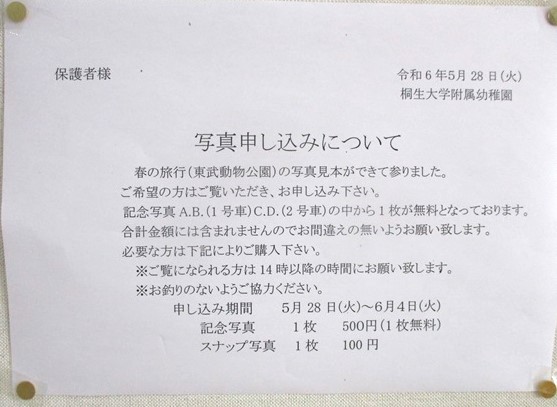 保護者様
令和6年5月28日(火)
桐生大学附属幼稚園
写真申し込みについて
春の旅行(東武動物公園)の写真見本ができて参りました。
ご希望の方はご覧いただき、お申し込み下さい。
記念写真A.B.(1号車)C.D.(2号車)の中から1枚が無料となっております。
合計金額には含まれませんのでお間違えの無いようお願い致します。
必要な方は下記によりご購入下さい。
※ご覧になられる方は14時以降の時間にお願い致します。
※お釣りのないようご協力ください。
申し込み期間 5月28日(火)～6月4日(火)
記念写真 1枚 500円(1枚無料)
スナップ写真 1枚 100円